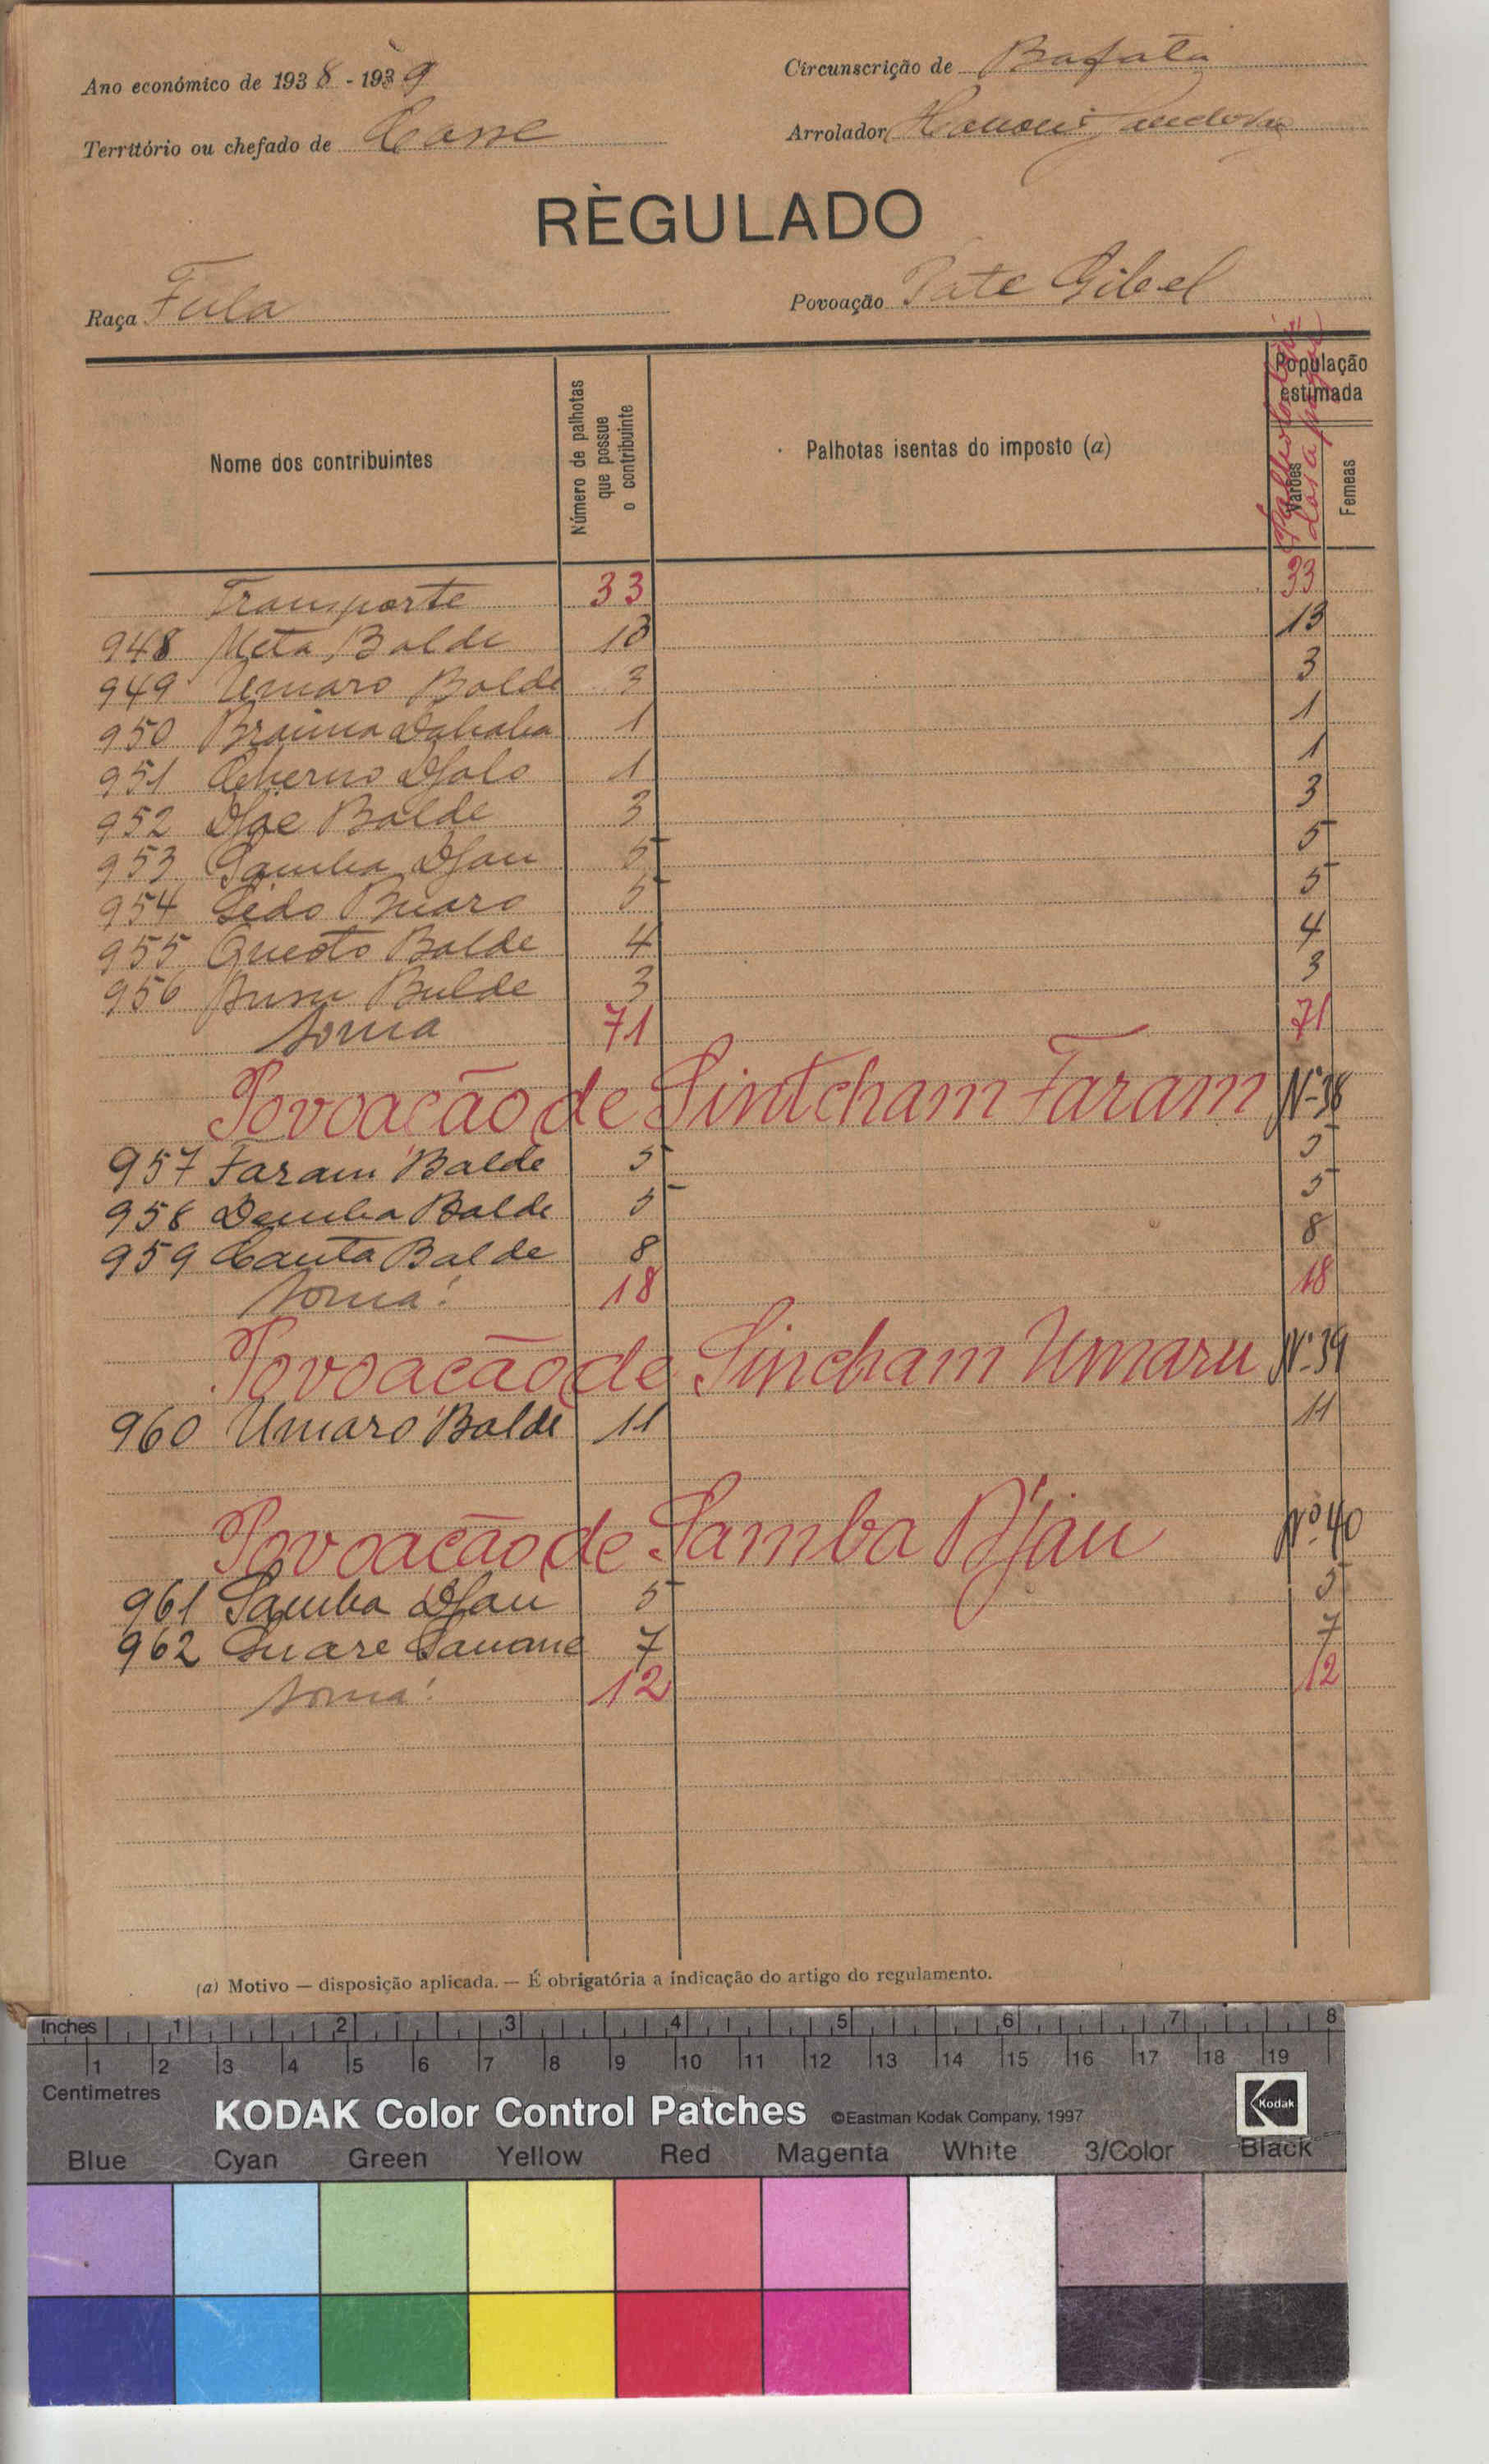 Ano económico de 1938 - 1939
Circunscrição de Bafatá
Território ou chefado de Casse
Arrolador
RÈGULADO
Raça Fula
Povoação Pate Gibel
Nome dos contribuintes
Número de palhotas que possue o contribuinte
Palhotas isentas do imposto (a)
População estimada
Varões
Femeas
Transporte 33 33
948 Meta Balde 13 13
949 Umaro Balde 3 3
950 Braima Dahaba 1 1
951 Cherno Djalo 1 1
952 Djae Balde 3 3
953 Samba Djau 5 5
954 Sedo Buaro 5 5
955 Queoto Balde 4 4
956 Balde 3 3
Soma 71 71
Povoacão de Sintcham Faram Nº 38
957 Faram Balde 5 5
958 Demba Balde 5 5
959 Canta Balde 8 8
Soma! 18 18
Povoacão de Sincham Umaru Nº 39
960 Umaro Balde 11 11
Povoacão de Samba Djau Nº 40
961 Samba Djau 5 5
962 Suare Sauane 7 7
Soma! 12 12
(a) Motivo — disposição aplicada. — É obrigatória a indicação do artigo do regulamento.
Inches 1 2 3 4 5 6 7 8
1 2 3 4 5 6 7 8 9 10 11 12 13 14 15 16 17 18 19
Centimetres
KODAK Color Control Patches ©Eastman Kodak Company, 1997 Kodak
Blue Cyan Green Yellow Red Magenta White 3/Color Black